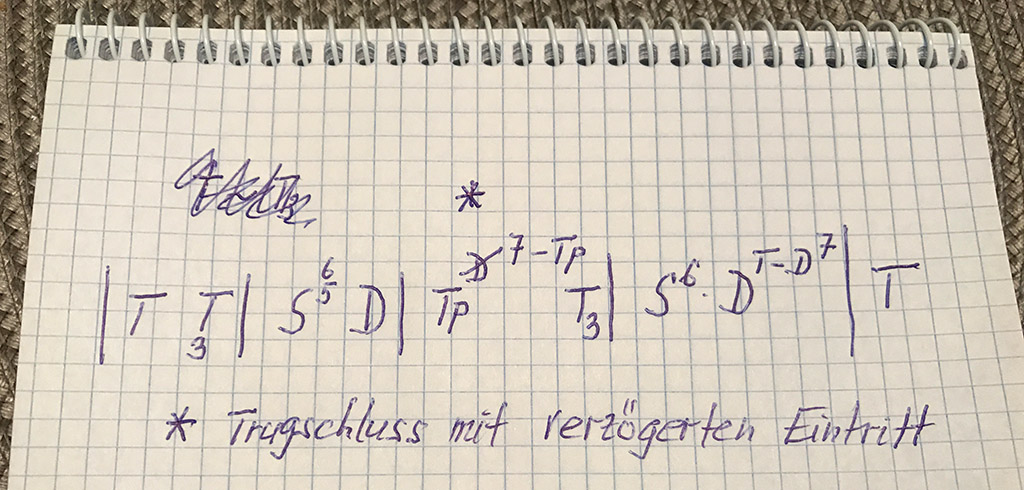 *
| T T₃ | S⁶₅ D | Tp D̸ ⁷⁻ᵀᵖ T₃ | S⁶· D ᵀ⁻ᴰ⁷ | T
* Trugschluss mit verzögerten Eintritt